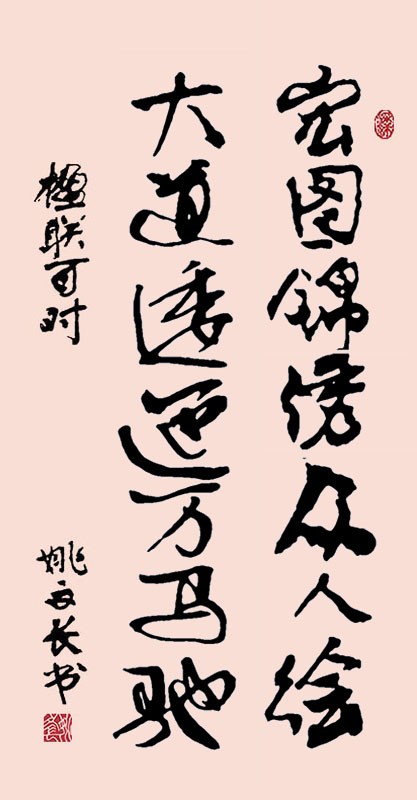 宏图锦绣众人绘
大道逶迤万马驰
楹联一对
姚文长书